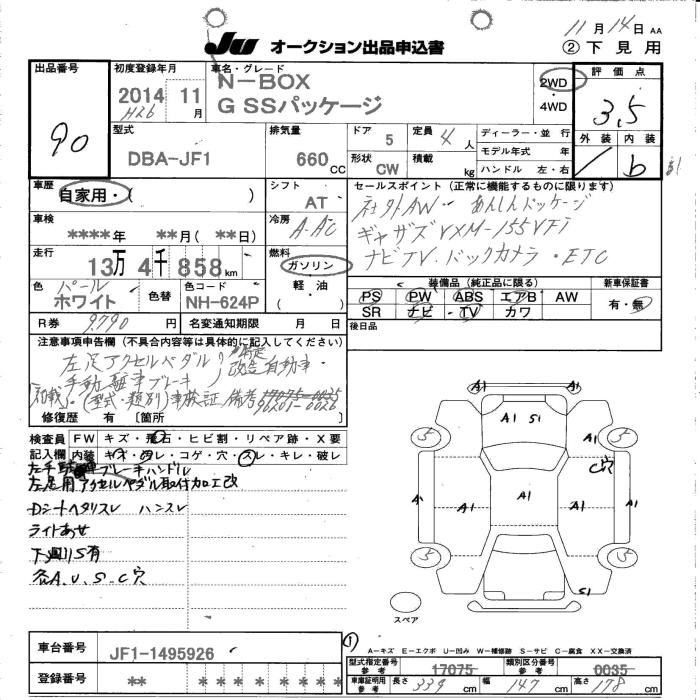 11月14日 AA
JU オークション出品申込書
② 下見用
出品番号
90
初度登録年月
2014 11月
H26
車名・グレード
N-BOX
G SSパッケージ
2WD
・
4WD
評価点
3,5
外装 内装
b
型式
DBA-JF1
排気量
660 CC
ドア 5
定員 4人
形状 CW
積載 kg
ディーラー・並行
モデル年式 年
ハンドル 左・右
車歴
自家用・( )
シフト
AT
セールスポイント(正常に機能するものに限ります)
社外AW あんしんパッケージ
ギャザズ VXM-155VFi
ナビTV.バックカメラ・ETC
車検
****年 **月(**日)
冷房
A-AC
走行
13万 4千 858km
燃料
ガソリン
軽油
( )
色
パール
ホワイト
色替
色コード
NH-624P
装備品(純正品に限る)
PS PW ABS エアB AW
SR ナビ・TV カワ
新車保証書
有・無
R券 9,790円
名変通知期限 月 日
後日品
注意事項申告欄(不具合内容等は具体的に記入してください)
左足アクセルペダル
改造自動車・
手動駐車ブレーキ
記載、(型式・類別)車検証 備考 17075-0035
96201-0026
修復歴 有 〔箇所
検査員記入欄
FW キズ・飛石・ヒビ割・リペア跡・X要
内装 キズ・汚レ・コゲ・穴・スレ・キレ・破レ
左手駐車ブレーキハンドル
左足用アクセルペダル取付加工改
Dシートヘタリスレ ハンスレ
ライトあせ
下廻りS有
各A.U.S.C穴
A1 A1
A1 S1
A1
5 5
C穴
A1 A1 A1 A1 A1
5 5
S1
A1
スペア
車台番号
JF1-1495926
登録番号
** * * * * * * * *
①
A-キズ E-エクボ U-凹み W-補修跡 S-サビ C-腐食 XX-交換済
型式指定番号 参考 17075
類別区分番号 参考 0035
車庫証明用 参考 長さ 339cm 幅 147cm 高さ 178cm